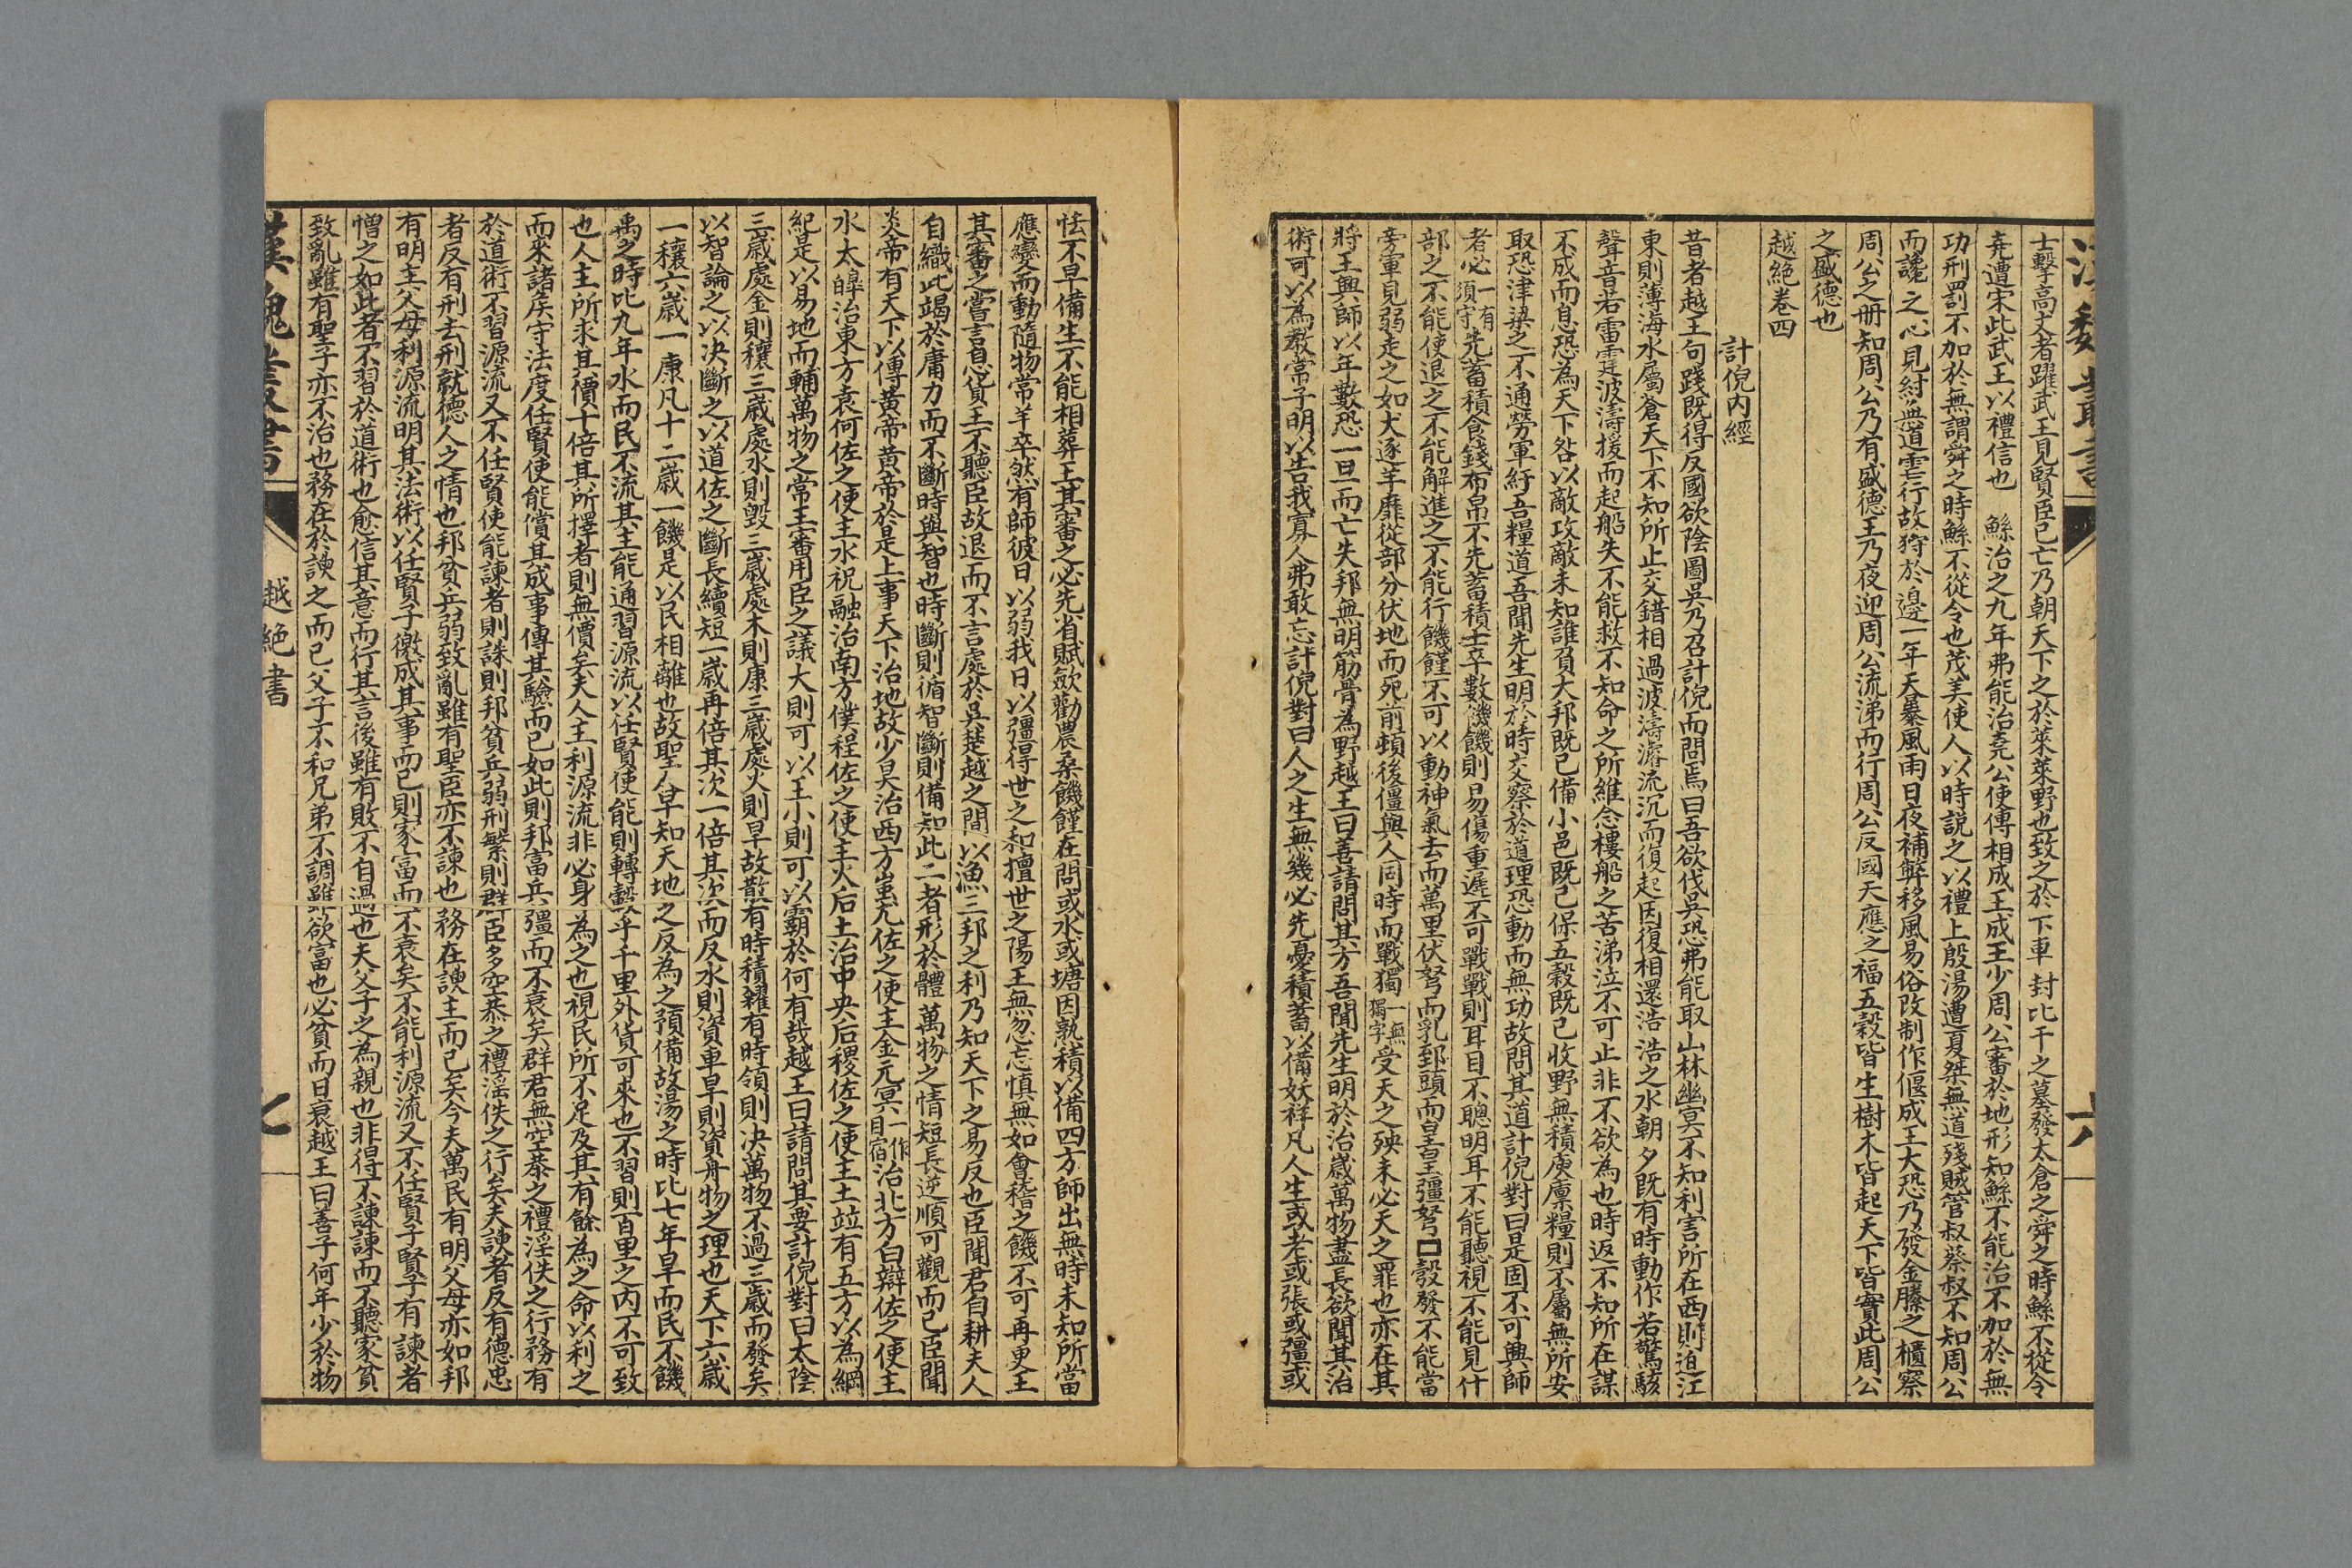 漢魏叢書
六
士擊高丈者躍武王見賢臣已亡乃朝天下之於萊萊野也致之於下車 封比干之墓發太倉之舜之時鯀不從令
堯遭宋此武王以禮信也 鯀治之九年弗能治堯公使傅相成王成王少周公審於地形知鯀不能治不加於無
功刑罰不加於無謂舜之時鯀不從令也茂美使人以時説之以禮上殷湯遭夏桀無道殘賊管叔蔡叔不知周公
而讒之心見紂無道雲行故狩於邊一年天暴風雨日夜補觧移風易俗改制作偃成王大恐乃發金縢之櫃察
周公之册知周公乃有盛德王乃夜迎周公流涕而行周公反國天應之福五穀皆生樹木皆起天下皆實此周公
之盛德也
越絶巻四
計倪内經
昔者越王句踐既得反國欲陰圖吳乃召計倪而問焉曰吾欲伐吳恐弗能取山林幽冥不知利害所在西則迫江
東則薄海水屬蒼天下不知所止交錯相過波濤濬流沉而復起因復相還浩浩之水朝夕既有時動作若驚駭
聲音若雷霆波濤援而起船失不能救不知命之所維念樓船之苦涕泣不可止非不欲為也時返不知所在謀
不成而息恐為天下咎以敵攻敵未知誰負大邦既已備小邑既已保五穀既已收野無積庾廩糧則不屬無所安
取恐津梁之不通勞軍紆吾糧道吾聞先生明於時交察於道理恐動而無功故問其道計倪對曰是固不可興師
者必一有須字先蓄積食錢布帛不先蓄積士卒數饑饑則易傷重遲不可戰戰則耳目不聰明耳不能聽視不能見什
部之不能使退之不能解進之不能行饑饉不可以動神氣去而萬里伏弩而乳郅頭而皇皇彊弩囗彀發不能當
旁軍見弱走之如犬逐羊靡從部分伏地而死前頓後僵與人同時而戰獨一無獨字受天之殃未必天之罪也亦在其
將王興師以年數恐一旦而亡失邦無明筋骨為野越王曰善請問其方吾聞先生明於治歲萬物盡長欲聞其治
術可以為教常子明以告我寡人弗敢忘計倪對曰人之生無幾必先憂積蓄以備妖祥凡人生或老或張或彊或
怯不早備生不能相葬王其審之必先省賦斂勸農桑饑饉在問或水或塘因熟積以備四方師出無時未知所當
應變而動隨物常羊卒然有師彼日以弱我日以彊得世之和擅世之陽王無忽忘慎無如會稽之饑不可再更王
其審之嘗言息貨王不聽臣故退而不言處於吳楚越之間以漁三邦之利乃知天下之易反也臣聞君自耕夫人
自織此竭於庸力而不斷時與智也時斷則循智斷則備知此二者形於體萬物之情短長逆順可觀而已臣聞
炎帝有天下以傳黃帝黃帝於是上事天下治地故少昊治西方蚩尤佐之使主金元冥一作目宿治北方白辯佐之使主
水太皡治東方袁何佐之使主水祝融治南方僕程佐之使主火后土治中央后稷佐之使主土竝有五方以為綱
紀是以易地而輔萬物之常王審用臣之議大則可以王小則可以霸於何有哉越王曰請問其要計倪對曰太陰
三歲處金則穰三歲處水則毀三歲處木則康三歲處火則旱故散有時積糴有時領則决萬物不過三歲而發矣
以智論之以决斷之以道佐之斷長續短一歲再倍其次一倍其次而反水則資車旱則資舟物之理也天下六歲
一穰六歲一康凡十二歲一饑是以民相離也故聖人早知天地之反為之預備故湯之時比七年旱而民不饑
禹之時比九年水而民不流其主能通習源流以任賢使能則轉轂乎千里外貨可來也不習則百里之内不可致
也人主所求其價十倍其所擇者則無價矣夫人主利源流非必身為之也視民所不足及其有餘為之命以利之
而來諸侯守法度任賢使能償其成事傳其驗而已如此則邦富兵彊而不衰矣群君無空恭之禮淫佚之行務有
於道術不習源流又不任賢使能諫者則誅則邦貧兵弱刑繁則群臣多空恭之禮淫佚之行矣夫諛者反有德忠
者反有刑去刑就德人之情也邦貧兵弱致亂雖有聖臣亦不諫也務在諛主而已矣今夫萬民有明父母亦如邦
有明主父母利源流明其法術以任賢子徼成其事而已則家富而不衰矣不能利源流又不任賢子賢子有諫者
憎之如此者不習於道術也愈信其意而行其言後雖有敗不自過也夫父子之為親也非得不諫諫而不聽家貧
致亂雖有聖子亦不治也務在於諛之而已父子不和兄弟不調雖欲富也必貧而日衰越王曰善子何年少於物
漢魏叢書
越絶書
七